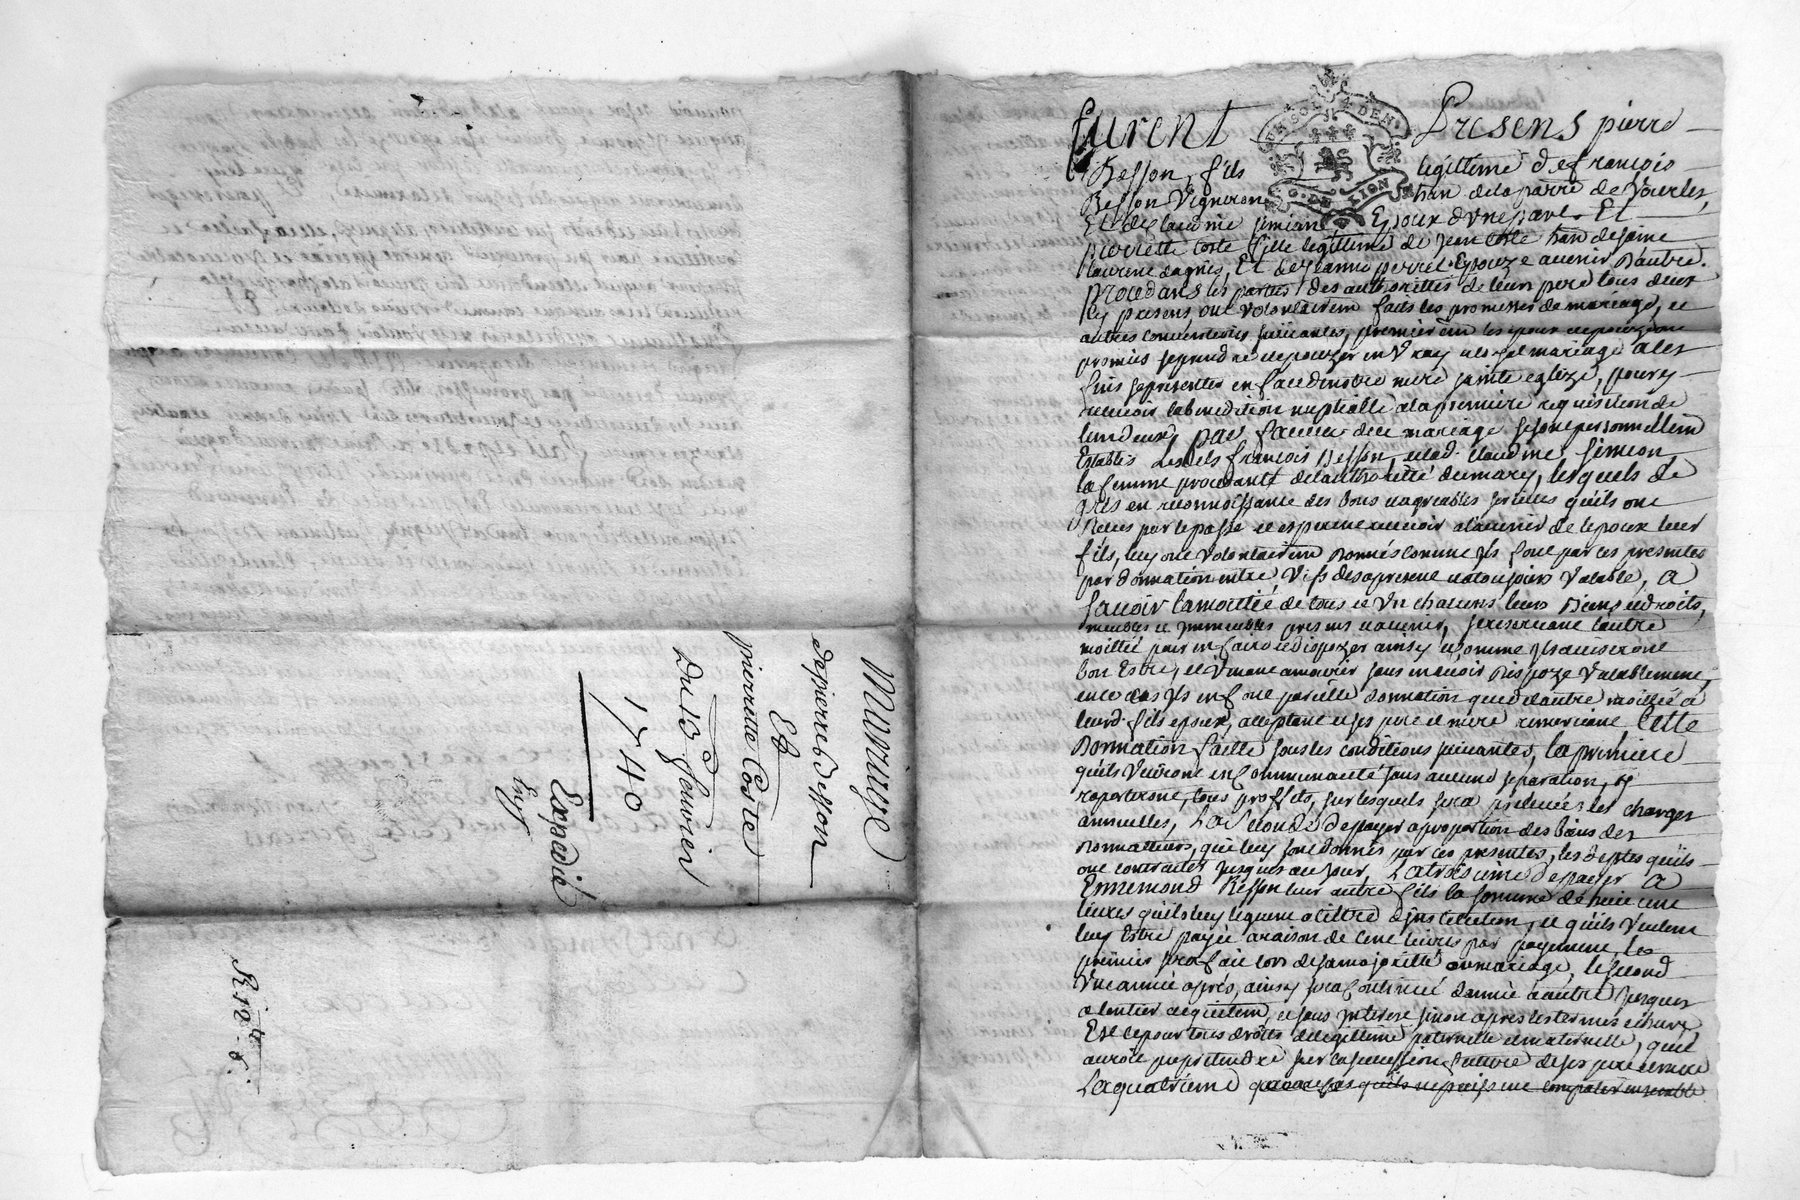 Mariage
de pierre Besson
Et
pierrette Coste
Du 13 feuvrier
1740
Expedié
furent Presens pierre
TRISOL DEN.
G. DE LION
Besson, fils legittime de françois
Besson Vigneron han de la parre de Vourles,
Et de Claudine simeon Epoux d'une part. Et
pierrette Coste fille legittime de jean Coste han de saint
laurent dagnis, Et de jeanne perret Epouze avenir Dautre.
procedans les parties des authorittés de leurs pere tous deux
icy presens ont Volontairem faits les promesses de mariage, et
autres conventions suivantes, premierem les epoux et epouze ont
promis se prendre et epouzer en Vray et loyal mariage a les
fins se presenter en face de notre mere sainte eglize, pour y
recevoir la benedition nuptialle a la premiere requisition de
lun deux, par faveur de ce mariage se sont personnellem
Establis Lesdts françois Besson, et lad. Claudine Simeon
sa femme procedante de lauthoritté du mary, lesquels de
grés en reconnoissance des bons et agreables services qu'ils ont
Reçus par le passé et esperent recevoir a l'avenir de lepoux leur
fils, luy ont Volontairem Donnés comme jls font par ces presentes
par donnation entre Vifs des a present et a toujours Valable, A
sçavoir la moitié de tous et Vn chacuns leurs Biens et droits,
meubles et jmmeubles presens et avenir, se reservant l'autre
moitié pour en faire et dispozer ainsy et comme jls aviseront
bon Estre, et Venant a mourir sans en avoir Dispozé Valablement,
en ce cas jls en font pareille donnation que de l'autre moittié a
leurd. fils epoux, acceptant et ses pere et mere remerciant Cette
Donnation faitte sous les conditions suivantes, la premiere
qu'ils Vivront en Communauté sans aucune separation, et
raporteront, tous proffits, sur lesquels sera prelevé les charges
annuelles, La seconde De payer a proportion des biens des
Donnatteurs, que luy sont donnés par ces presentes, les deptes qu'ils
ont contractés jusques au jour, La troisieme de payer A
Ennemond Besson leur autre fils la somme de huit cent
livres qu'ils luy leguent a tiltre d'jnstitution, et qu'ils Veulent
luy Estre payée a raison de Cent livres par payement, le
premier sera fait lors de sa majoritté ou mariage, le second
Vne année aprés, ainsy sera Continué d'année a autre jusques
a lentier acquittem, et sans jnterest sinon aprés les termes echus,
Et ce pour tous droits de legittime paternelle et maternelle, quil
auroit pu pretendre sur la succession future de ses pere et mere
La quatrieme que au cas qu'ils ne puissent compatir ensemble